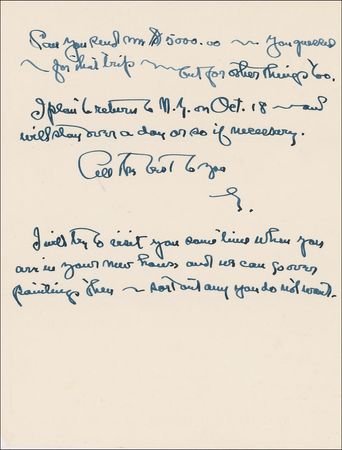 Can you send me $5000.00 ~ you guessed
~ for that trip ~ but for other things too.
I plan to return to N.Y. on Oct. 18 ~ and
will stay over a day or so if necessary.
All the best to you
G.
I will try to visit you sometime when you
are in your new house and we can go over
paintings then ~ sort out any you do not want.